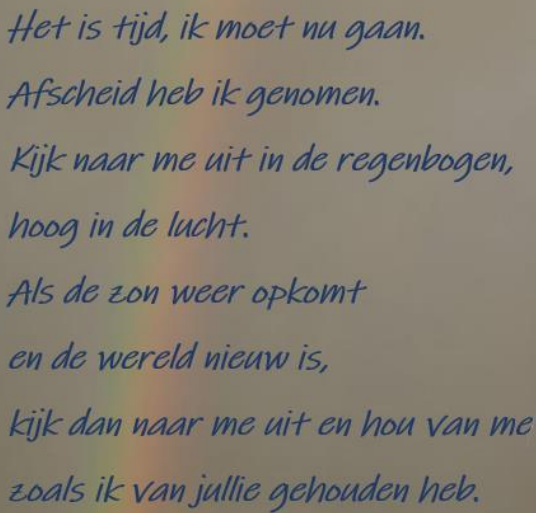 Het is tijd, ik moet nu gaan.
Afscheid heb ik genomen.
Kijk naar me uit in de regenbogen,
hoog in de lucht.
Als de zon weer opkomt
en de wereld nieuw is,
kijk dan naar me uit en hou van me
zoals ik van jullie gehouden heb.